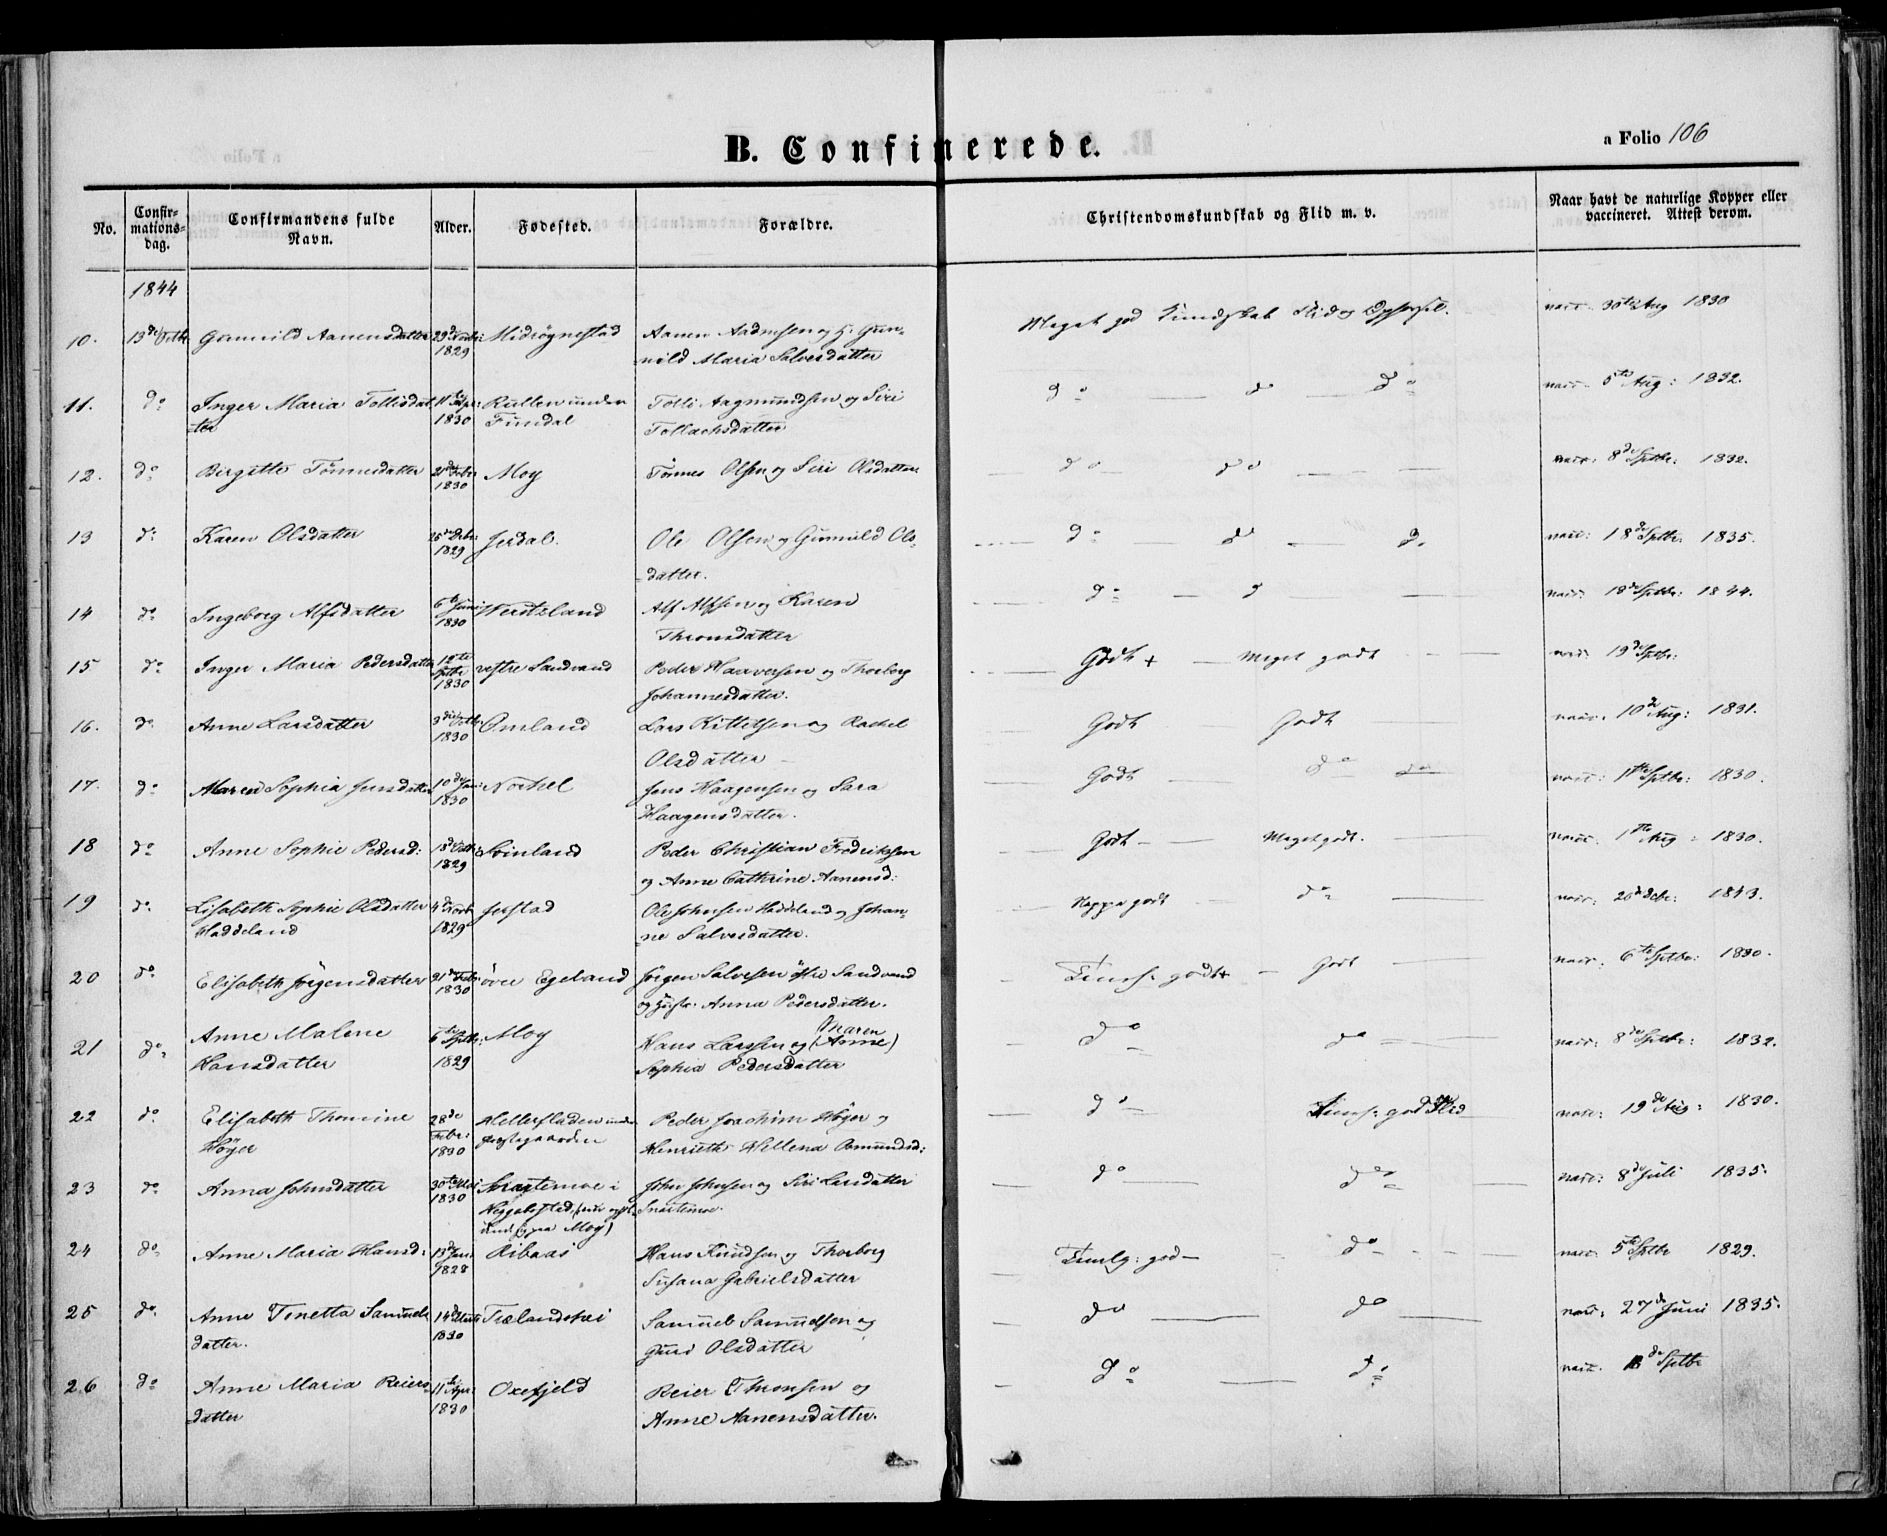 B. Confirmerede.
a Folio 106
No.
Confir-
mations-
dag.
Confirmandens fulde
Navn.
Alder.
Fødested.
Forældre.
Christendomskundskab og Flid m. v.
Naar havt de naturlige Kopper eller
vaccineret. Attest derom.
1844
10. 13de Octbr Gunnild Aanensdatter 29de Novbr: 1829 Midtøgnestad Aanen Aadnesen og H. Gun-
nild Maria Salvesdatter Meget god Kundskab Flid og vacc: 30te Aug 1830
11. do Inger Maria Tollisdat-
ter 11te Apr: 1830 Rullen under
Fundal Tolli Aagmundsen og Siri
Tollachsdatter do do do vacc: 5te Aug: 1832.
12. do Birgitte Tønnesdatter 21de Febr 1830 Moy Tønnes Olsen og Siri Olsdatter do do vacc: 8de Sptbr: 1832.
13 do Karen Olsdatter 25de Debr: 1829 Jerdal. Ole Olsen og Gunnild Ols-
datter. do do d. vacc: 18de Sptbr: 1835.
14 do Ingeborg Alfsdatter 6te Juni 1830 Alf Alfsen og Karen
Thronsdatter do d vacc: 18de Sptbr: 1844.
15 do Inger Maria Pedersdatter 12te Sptbr 1830 vestre Sandvand Peder Haaversen og Thorborg
Johannesdatter. Godt + Meget godt vacc: 19de Sptbr:
16. do Anne Larsdatter 3die Octbr 1830 Omland Lars Kittelsen og Rachel
Olsdatter Godt Godt vacc: 10de Aug: 1831.
17. do Maren Sophia Jensdatter 10de Jan: 1830 Jens Haagensen og Sara
Haagensdatter. Godt do do vacc: 1ste Sptbr: 1830.
18 do Anne Sophie Pedersd: 18de Octbr: 1829 Peder Christian Fredriksen
og Anne Cathrine Aanensd: Godt Meget godt. vacc: 1ste Aug: 1830.
19 do Lisabeth Sophie Olsdatter
Haddeland 4de Novbr 1829 Jerstad Ole Johnsen Haddeland og Johan-
ne Salvesdatter. Neppe godt do vacc: 20de Debr: 1843.
20 do Elisabeth Jörgensdatter 1830 övre Egeland Jörgen Salvesen östre Sandvand
og Hustr. Anna Pedersdatter. Temh: godt + Godt vacc: 6te Sptbr: 1830.
21 do Anne Malene
Hansdatter 6te Sptbr: 1829 Moy Hans Larssen og (Maren
Anne)
Sophia Pedersdatter do do vacc: 8de Sptbr: 1832.
22 do Elisabeth Thomine
Höyer 28de Febr: 1830 Hellersladen under
Præstegaarden Peder Joachim Höyer og
Henriette Hellena Osmundsd: do Temh: god Flid vacc: 19de Aug: 1830.
23 do Anna Johnsdatter 30te Mai 1830 Snartemoe i
Heggebostad
Moy) John Johnsen og Siri Larsdatter
Snartemoe. do do vacc: 8de Juli 1835.
24 do Anne Maria Hansd: 13de Jan: 1828 Ribaas Hans Knudsen og Thorborg
Susana Gabrielsdatter Temlg: god do vacc: 5te Sptbr 1829.
25 do Anne Tonetta Samuels-
datter. 14de Marts 1830 Trælandshei Samuel Samuelsen og
Guri Olsdatter do do vacc: 27de Juni 1835.
26 do Anne Maria Reiers-
datter 11te Apr: 1830 Oxefjeld Reier Thronsen og
Anne Aanensdatter. do do vacc. 18de Sptbr